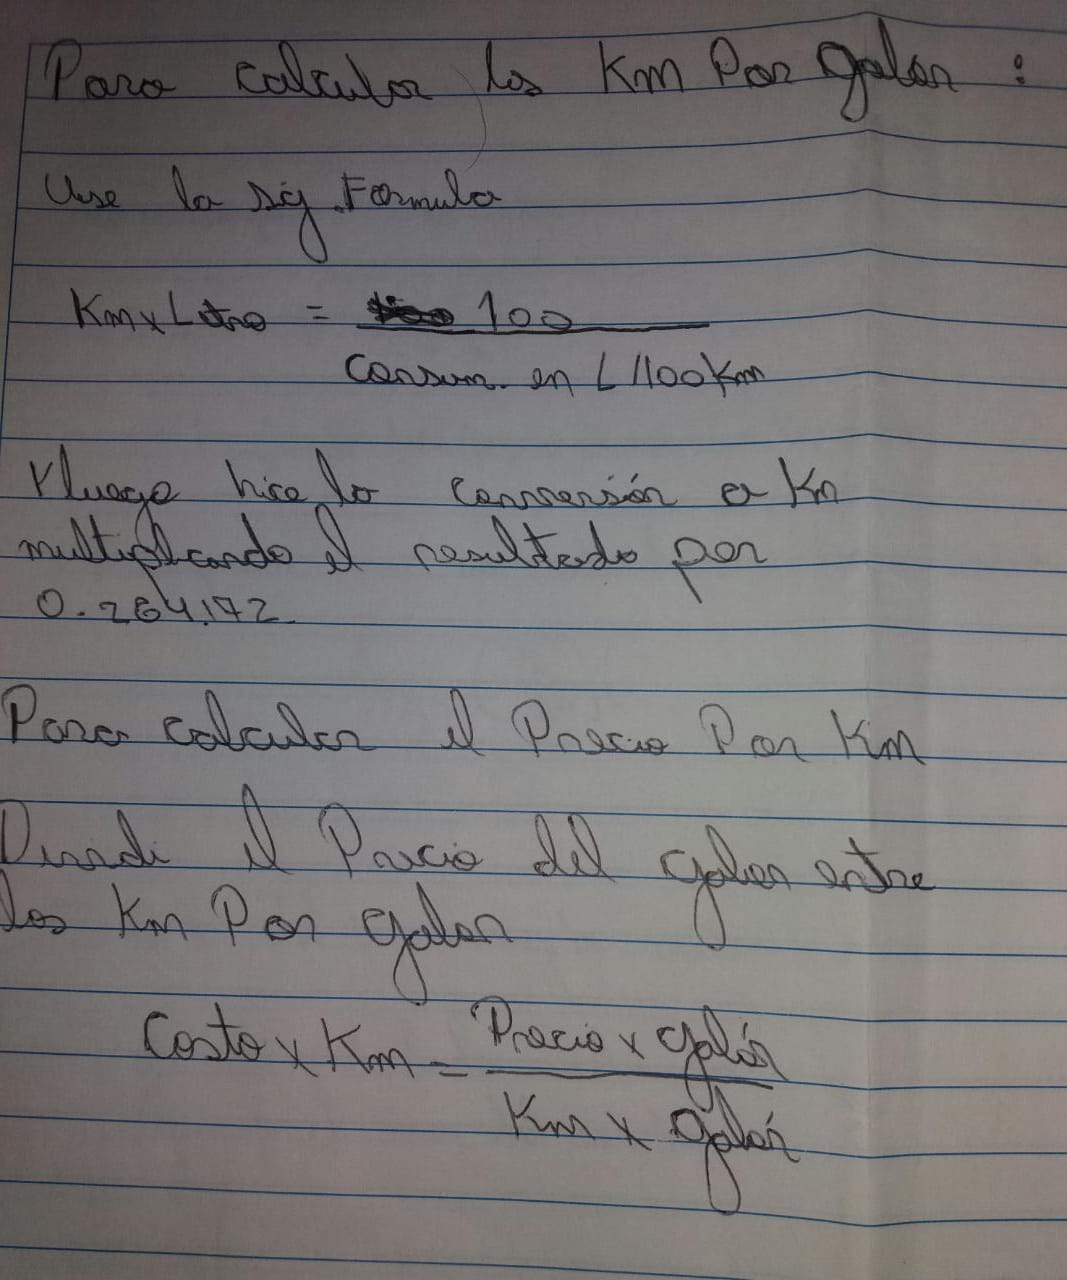 Para calcular los Km Por galón :
Use la sig. Formula
Km x Litro = 100
Consum. en L/100Km
Y luego hice la conversión a Km
multiplicando el resultado por
0.264172
Para calcular el Precio Por Km
Dividi el Precio del galon entre
los Km Por galon
Costo x Km = Precio x galón
Km x galón